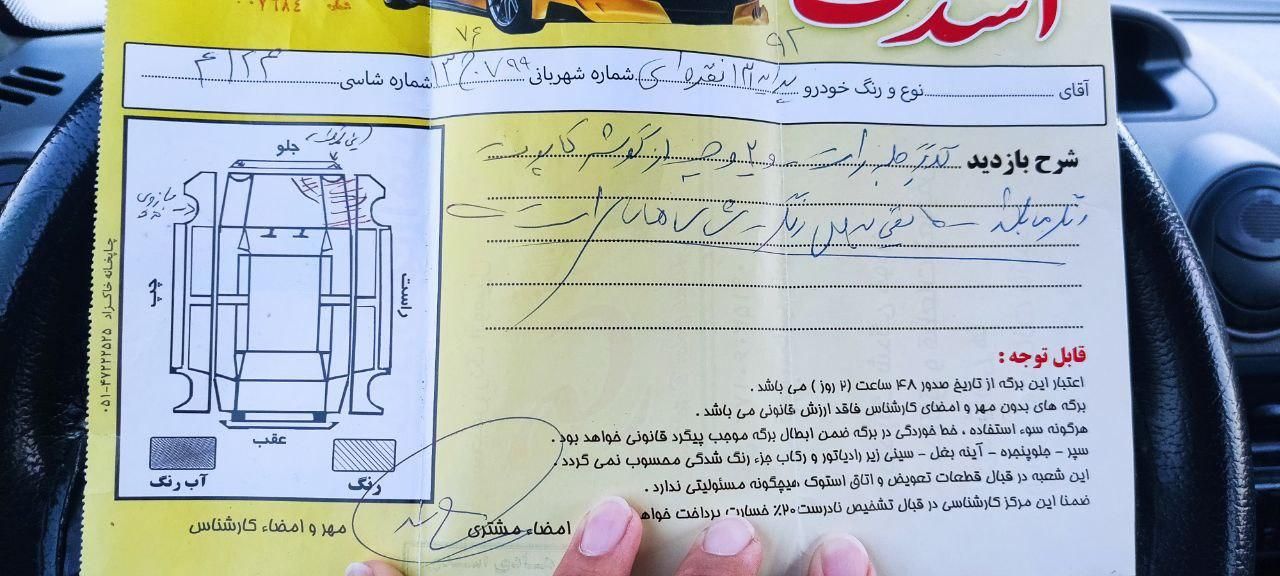 شماره ۰۰۷۶۸۴
آقای نوع و رنگ خودرو پراید ۱۳۱ نقره ای شماره شهربانی ۷۹۹ شماره شاسی ۶۱۲۳
۹۲
۷۴
شرح بازدید گلگیر جلو راست و ۲ وجب از گوشه کاپوت
رنگ میباشد مابقی بدون رنگ شاسی ها سالم است
قابل توجه :
اعتبار این برگه از تاریخ صدور ۴۸ ساعت (۲ روز ) می باشد .
برگه های بدون مهر و امضای کارشناس فاقد ارزش قانونی می باشد .
هرگونه سوء استفاده ، خط خوردگی در برگه ضمن ابطال برگه موجب پیگرد قانونی خواهد بود .
سپر - جلوپنجره - آینه بغل - سینی زیر رادیاتور و رکاب جزء رنگ شدگی محسوب نمی گردد .
این شعبه در قبال قطعات تعویض و اتاق استوک هیچگونه مسئولیتی ندارد .
ضمنا این مرکز کارشناسی در قبال تشخیص نادرست ۲۰٪ خسارت پرداخت خواهد
جلو
راست
چپ
عقب
رنگ
آب رنگ
امضاء مشتری
مهر و امضاء کارشناس
چاپخانه خاکزاد ۰۵۱-۴۷۲۲۲۵۲۵